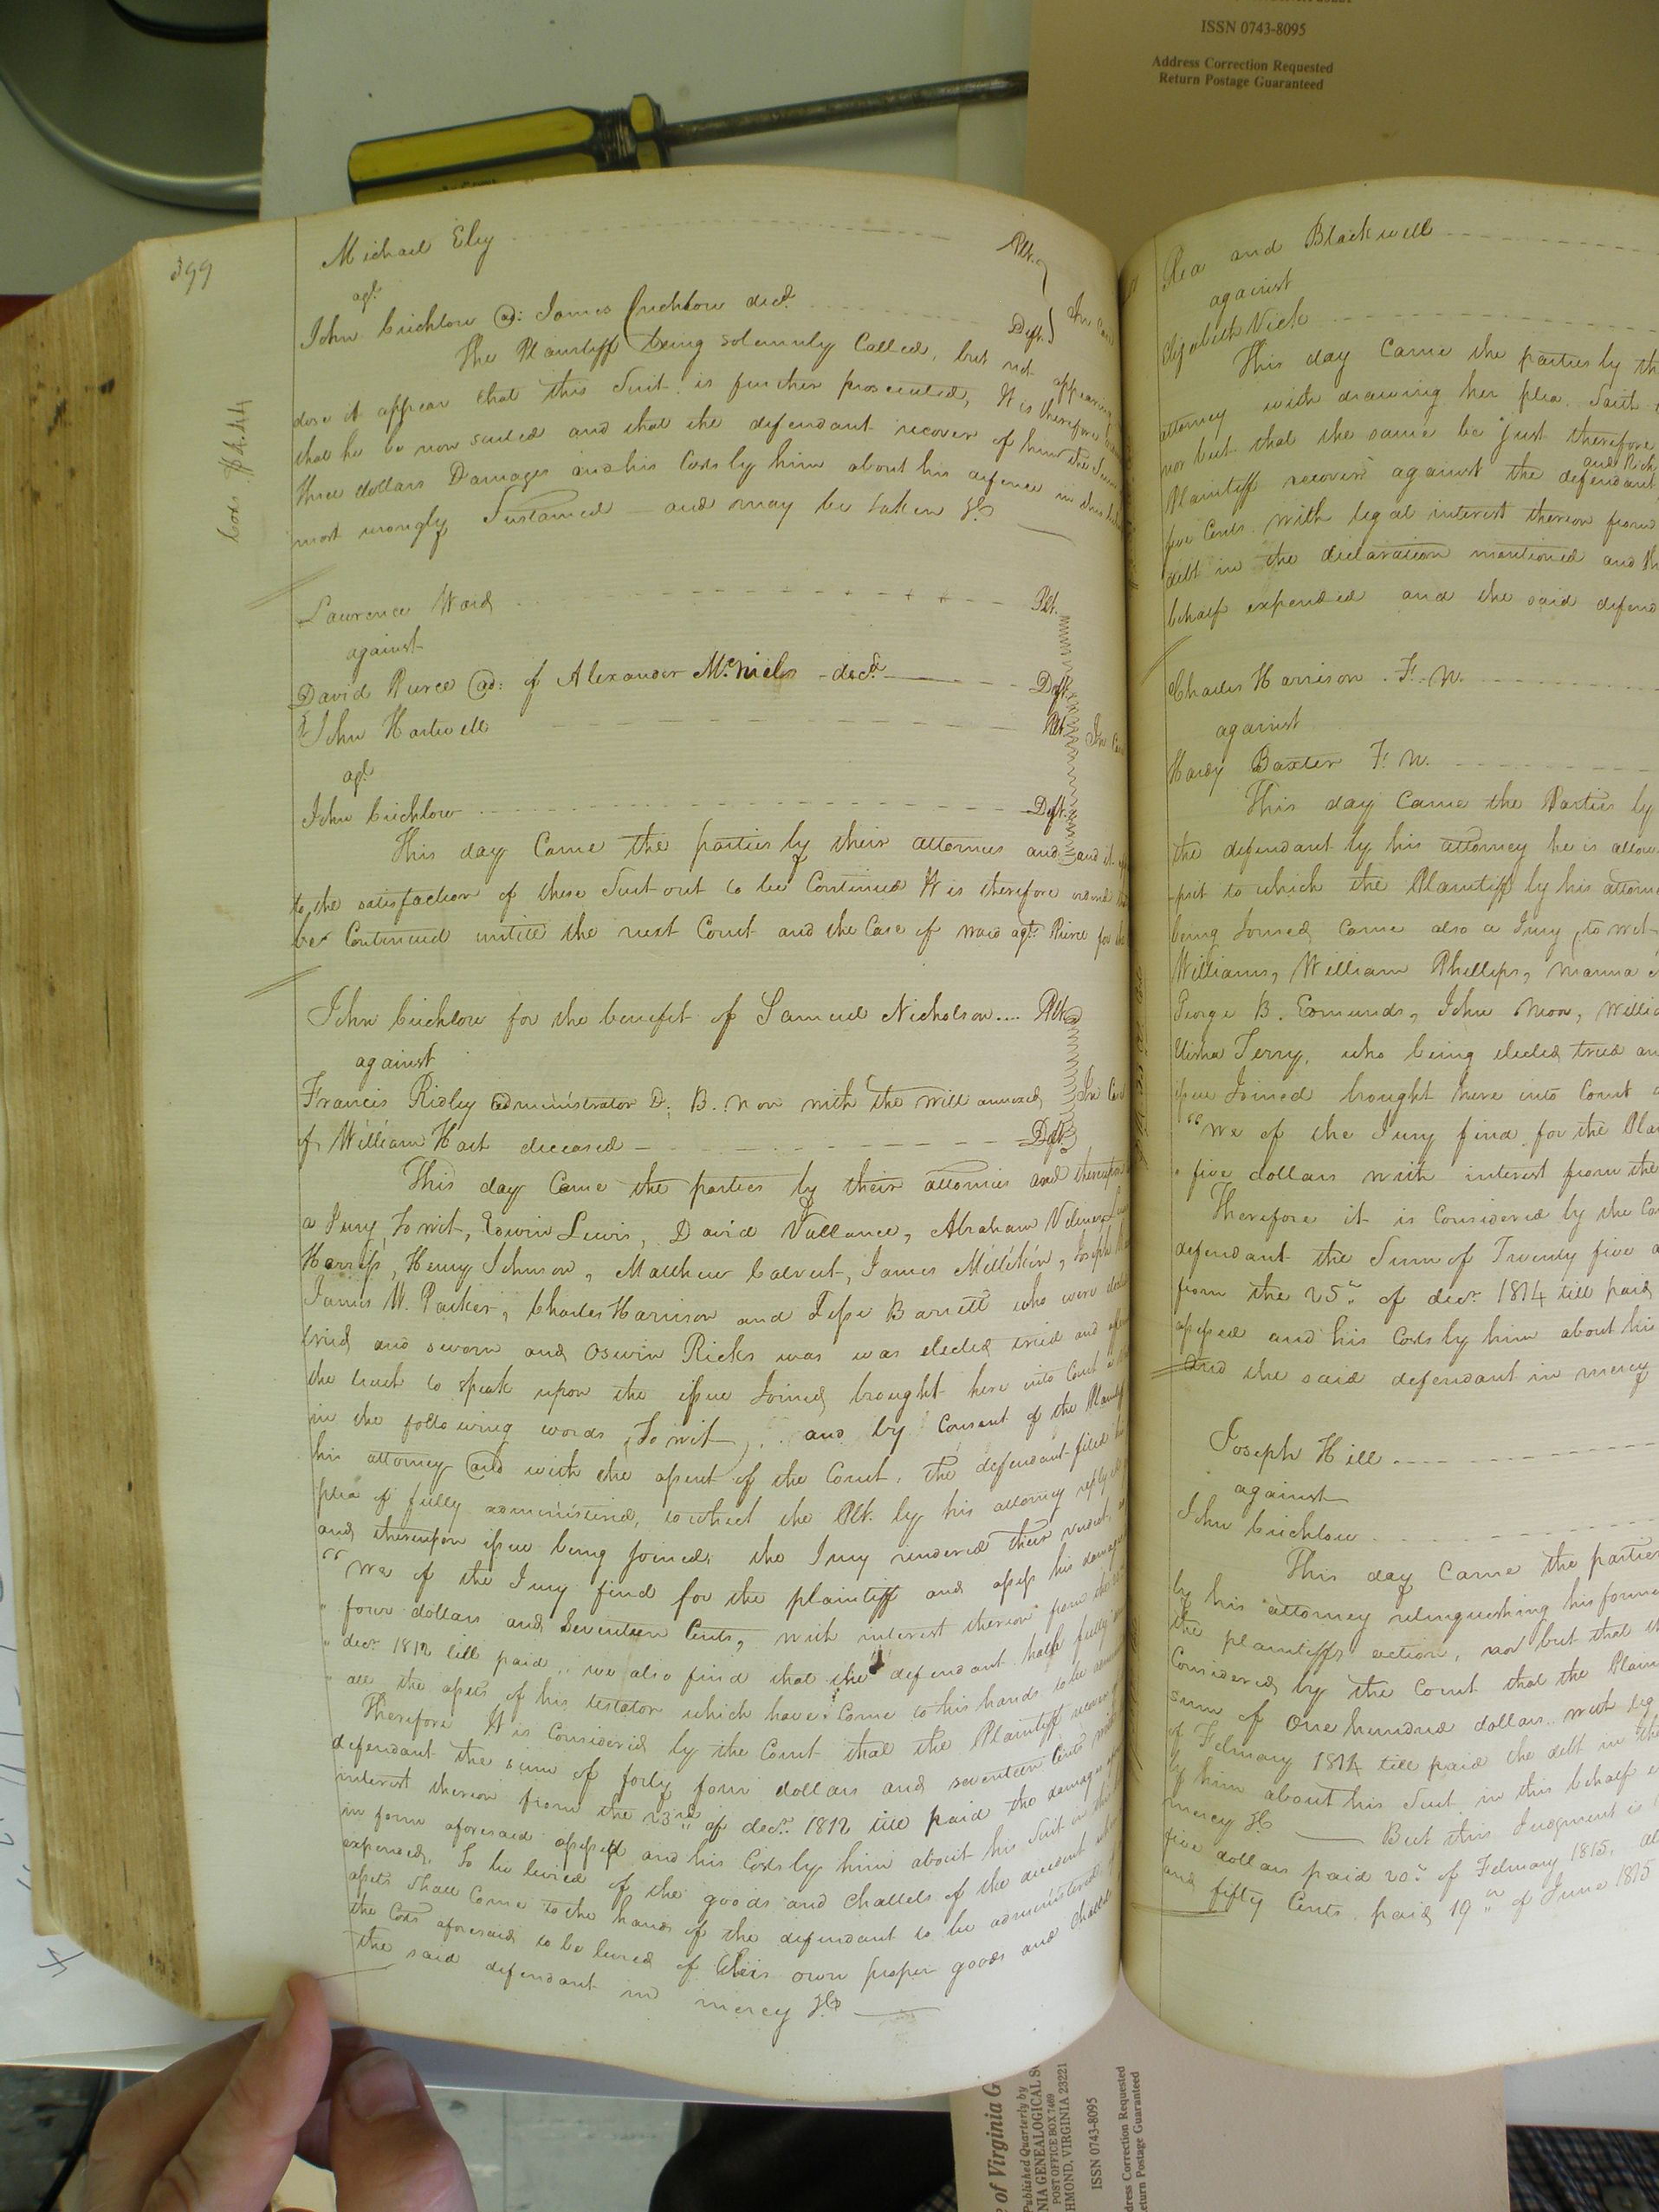 ISSN 0743-8095
Address Correction Requested
Return Postage Guaranteed
399
Michael Eley Plt.
agt.
John Crichlow ad: James Crichlow decd. Deft. In
The Plaintiff being solemnly called, but not appearing
dose it appear that this Suit is further prosecuted, It is therefore
that he be non suited and that the defendant recover of him the Sum
three dollars Damages and his Costs by him about his defence in this
most wrongly Sustained and may be taken &c
Cost $4.44
Lawrence Ward Plt.
against
David Pierce ad: of Alexander McNiels decd. Deft.
& John Hartwell Plt. In
agt.
John Crichlow Deft.
This day Came the parties by their attornies and and it
to the satisfaction of these Suit out to be Continued It is therefore
be Continued untill the next Court and the Case of Ward agt. Pierce for
John Crichlow for the benefit of Samuel Nicholson.... Plt.
against
Francis Ridley administrator D: B. non with the will annexed In
of William Hart deceased Deft.
This day Came the parties by their attornies and thereupon
a Jury, to wit, Edwin Lewis, David Vallance, Abraham
Harriss, Henry Johnson, Matthew Calvert, James Milliken, Joseph
James W. Parker, Charles Harrison and Jesse Barrett who were
tried and sworn and Oswin Ricks was was elected tried and
the truth to speak upon the issue Joined, brought here into Court
in the following words, to wit, and by Consent of the Plaintiff
his attorney and with the assent of the Court, the defendant filed his
plea of fully administered, to which the Plt. by his attorney
and thereupon issue being Joined, the Jury rendered their verdict
"We of the Jury find for the plaintiff and assess his damages
" four dollars and Seventeen Cents, with interest thereon from the
" decr. 1812 till paid, we also find that the defendant hath fully
" all the assets of his testator which have Come to his hands to be
Therefore It is Considered by the Court that the Plaintiff recover
defendant the sum of forty four dollars and seventeen Cents with
interest thereon from the 23rd of decr. 1812 till paid the damages
in form aforesaid assessed and his Costs by him about his Suit in
expended, To be levied of the goods and Chattels of the decedent when
assets shall Come to the hands of the defendant to be administered
the Costs aforesaid to be levied of their own proper goods and Chattels
the said defendant in mercy &c
Rea and Blackwell
against
Elizabeth Vick
This day Came the parties by
attorney with drawing her plea, Saith
nor but that the same be just therefore
and
Plaintiff recover against the defendant
five Cents with legal interest thereon from
debt in the declaration mentioned and
behalf expended and the said
Charles Harrison F. N.
against
Hardy Baxter F. N.
This day Came the Parties by
the defendant by his attorney he is
-psit to which the Plaintiff by his
being Joined, Came also a Jury, to wit
Williams, William Phillips,
George B. Edmunds, John Moor,
Elisha Terry, who being elected tried
issue Joined brought here into Court
"We of the Jury find for the
" five dollars with interest from the
Therefore it is Considered by the
defendant the Sum of Twenty five
from the 25th of decr. 1814 till paid
assessed and his Costs by him about
And the said defendant in mercy
Joseph Hill
against
John Crichlow
This day Came the
by his attorney relinquishing his
the plaintiffs action, nor but that
Considered by the Court that the
sum of One hundred dollars with
of February 1814 till paid the debt in the
by him about his Suit in this behalf
mercy &c But this Judgment is
five dollars paid 20th of February 1815,
and fifty Cents paid 19th of June 1815
of Virginia
Published Quarterly by
POST OFFICE BOX 7469
VIRGINIA 23221
ISSN 0743-8095
Address Correction Requested
Return Postage Guaranteed